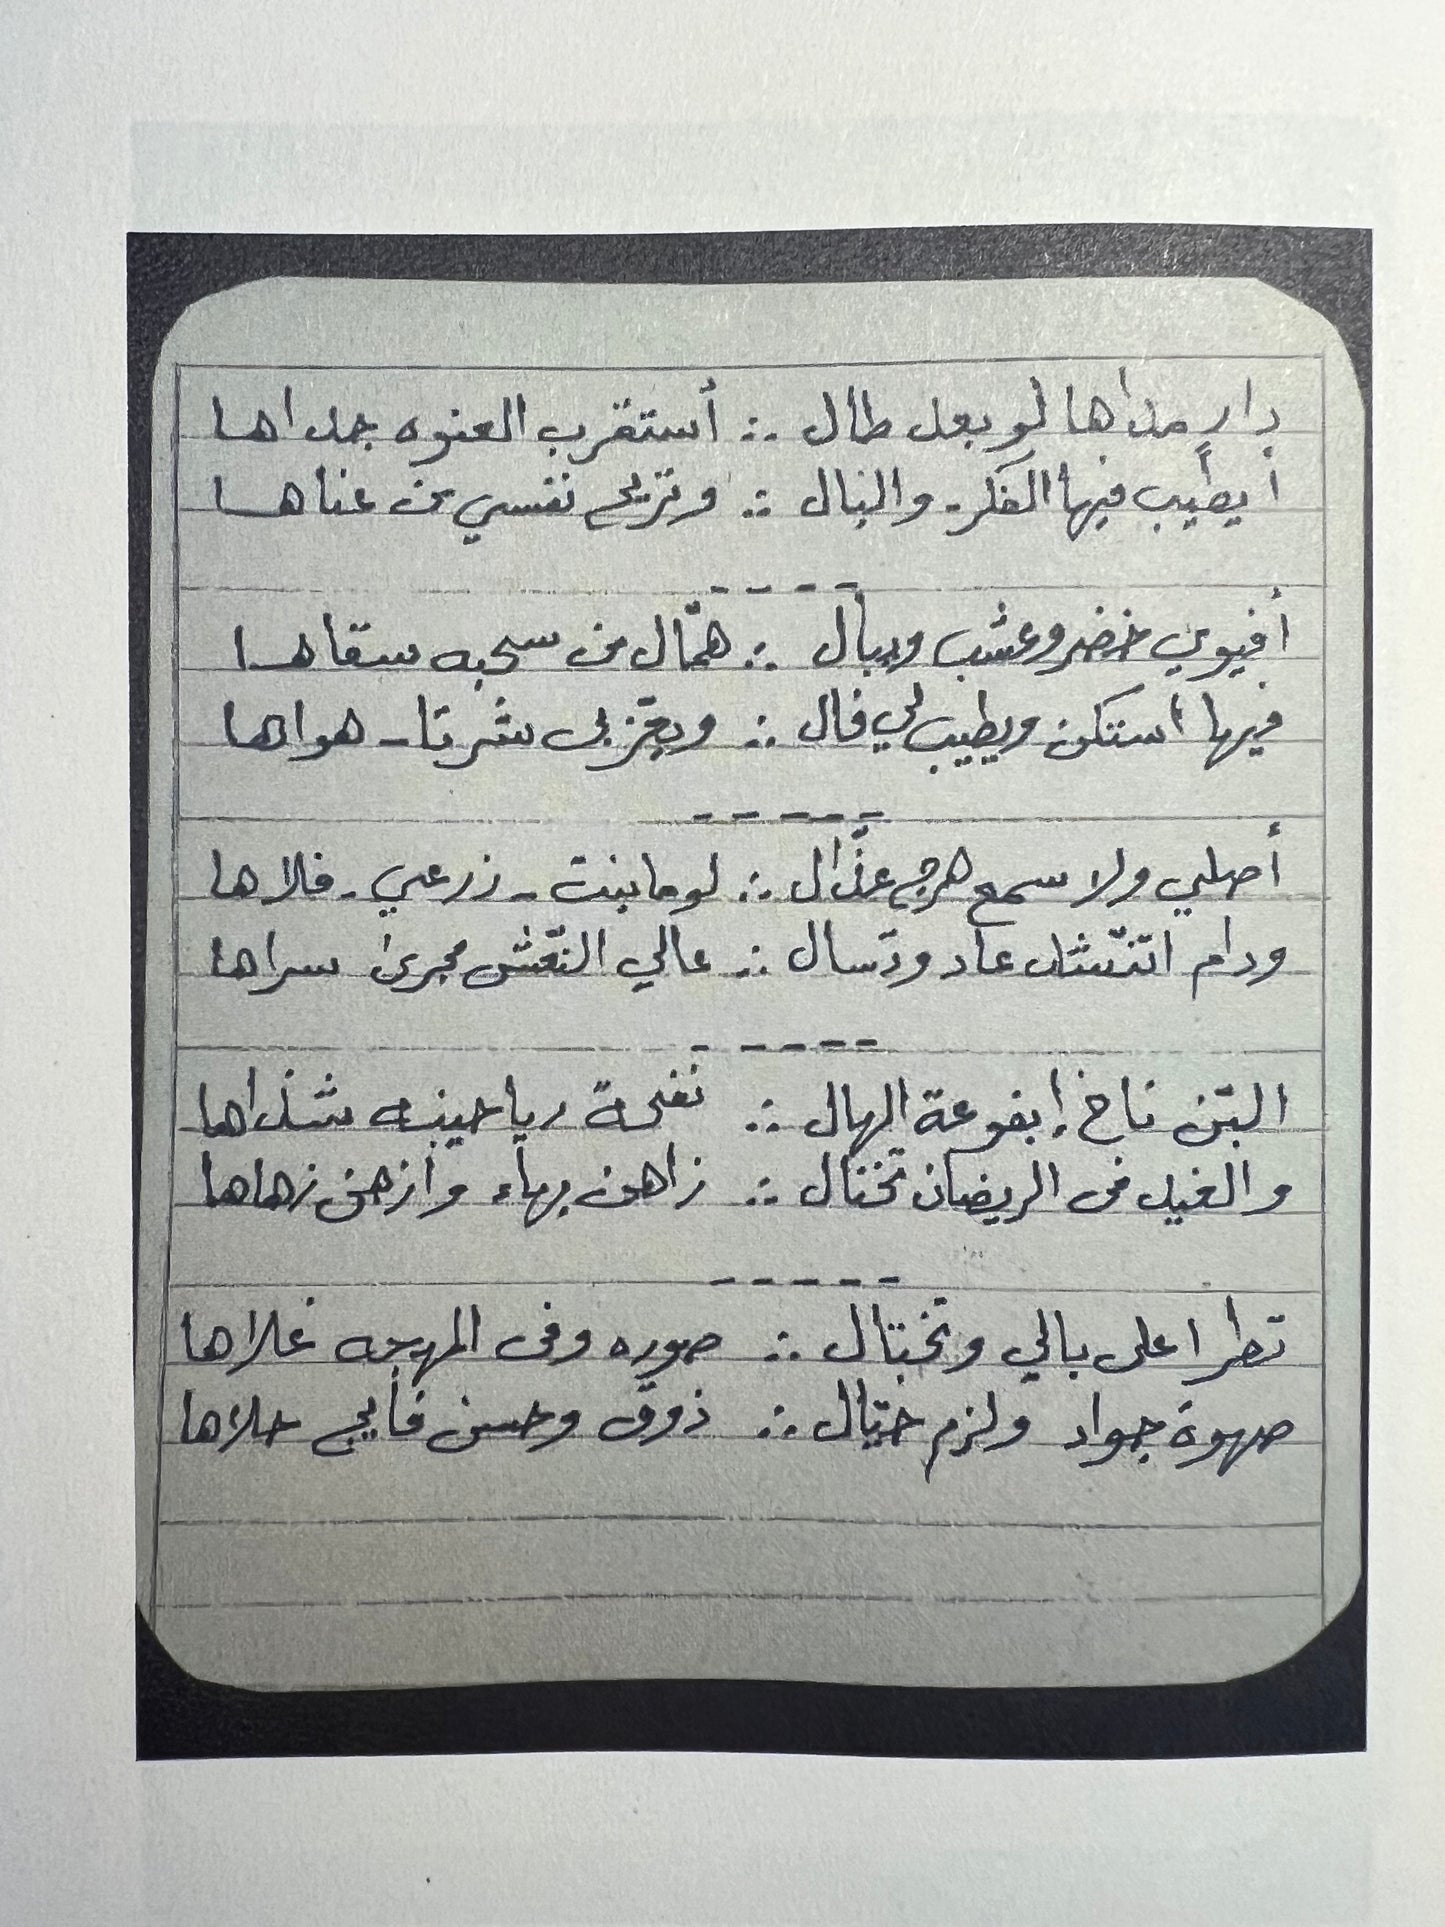 دارٍ مداها لو بعد طال ∴ أستقرب العنوه جداها
أيطيب فيها الفكر والبال ∴ وتريح نفسي من عناها
- - - -
أفيوي خضر وعشب وسيال ∴ همّال من سحبه سقاها
فيها استكن ويطيب لي فال ∴ ويعزّ بي شرتا هواها
- - - - -
أصلي ولا سمع هرج عذّال ∴ لو ما بنت - زرعي - فلاها
ودام اتنشد عاد وتسال ∴ عالي النّعش مجرى سراها
- - - - -
البّن ناخ إبفوعة الهال ∴ نفحة رياحينه شذاها
والغيد في الريضان تختال ∴ زاهن بهاء وأزهن زهاها
- - - - -
تطرا على بالي وتختال ∴ صوره وفى المهجه غلاها
صهوة جواد ولزم خيّال ∴ ذوق وحسن فايج حلاها